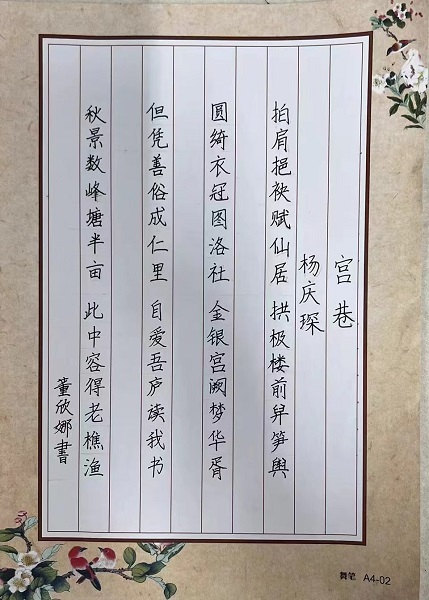 宫巷
杨庆琛
拍肩挹袂赋仙居 拱极楼前舁笋舆
圆绮衣冠图洛社 金银宫阙梦华胥
但凭善俗成仁里 自爱吾庐读我书
秋景数峰塘半亩 此中容得老樵渔
董欣娜書
舞笔 A4-02